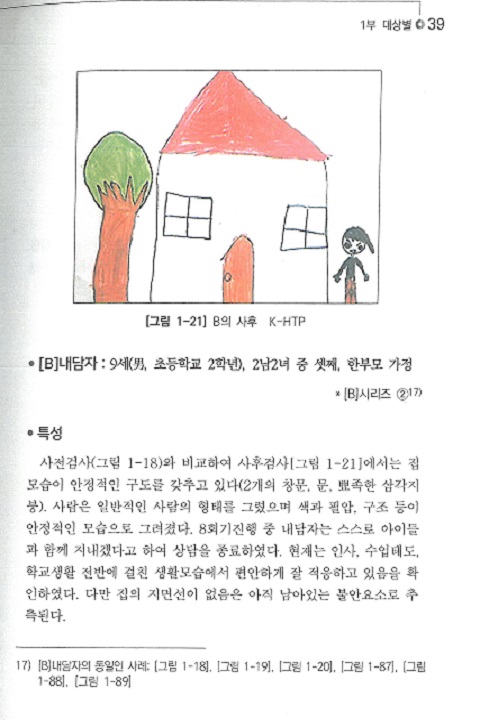 1부 대상별 39
[그림 1-21] B의 사후 K-HTP
• [B]내담자 : 9세(男, 초등학교 2학년), 2남2녀 중 셋째, 한부모 가정
* [B]시리즈 ②17)
• 특성
사전검사(그림 1-18)와 비교하여 사후검사[그림 1-21]에서는 집
모습이 안정적인 구도를 갖추고 있다(2개의 창문, 문, 뾰족한 삼각지
붕). 사람은 일반적인 사람의 형태를 그렸으며 색과 필압, 구조 등이
안정적인 모습으로 그려졌다. 8회기진행 중 내담자는 스스로 아이들
과 함께 지내겠다고 하여 상담을 종료하였다. 현재는 인사, 수업태도,
학교생활 전반에 걸친 생활모습에서 편안하게 잘 적응하고 있음을 확
인하였다. 다만 집의 지면선이 없음은 아직 남아있는 불안요소로 추
측된다.
17) [B]내담자의 동일인 사례: [그림 1-18], [그림 1-19], [그림 1-20], [그림 1-87], [그림
1-88], [그림 1-89]